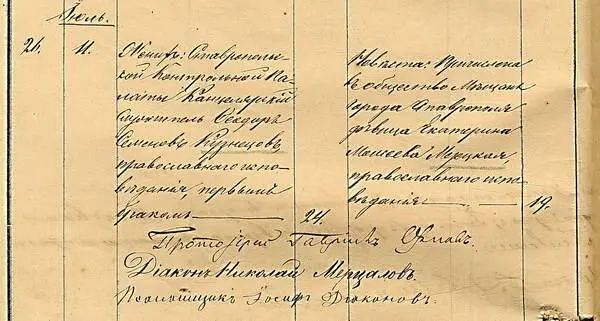 Іюль.
11.
Женихъ: Ставрополь-
ской Контрольной Па-
латы Канцелярскій
Служитель Ѳеодоръ
Семеновъ Кузнецовъ,
православнаго испо-
вѣданія, первымъ
бракомъ
24.
Невѣста: Причислена
въ общество Мѣщанъ
города Ставрополя
дѣвица Екатерина
Моисеева
православнаго испо-
вѣданія
19.
Протоіерей Гавріилъ
Діаконъ Николай Мерцаловъ.
Псаломщикъ Іосифъ Дьяконовъ.